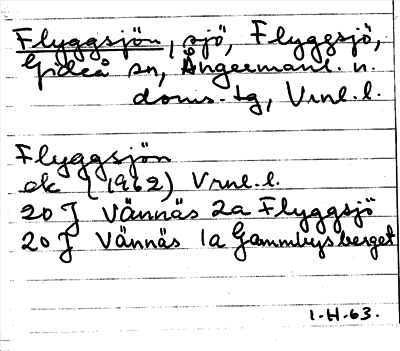 Flyggsjön, sjö, Flyggsjö,
Gideå sn, Ångermanl. n.
doms.-tg, Vrnl. l.
Flyggsjön
ek (1962) Vrnl. l.
20 J Vännäs 2a Flyggsjö
20 J Vännäs 1a Gammbysberget
1.H.63.